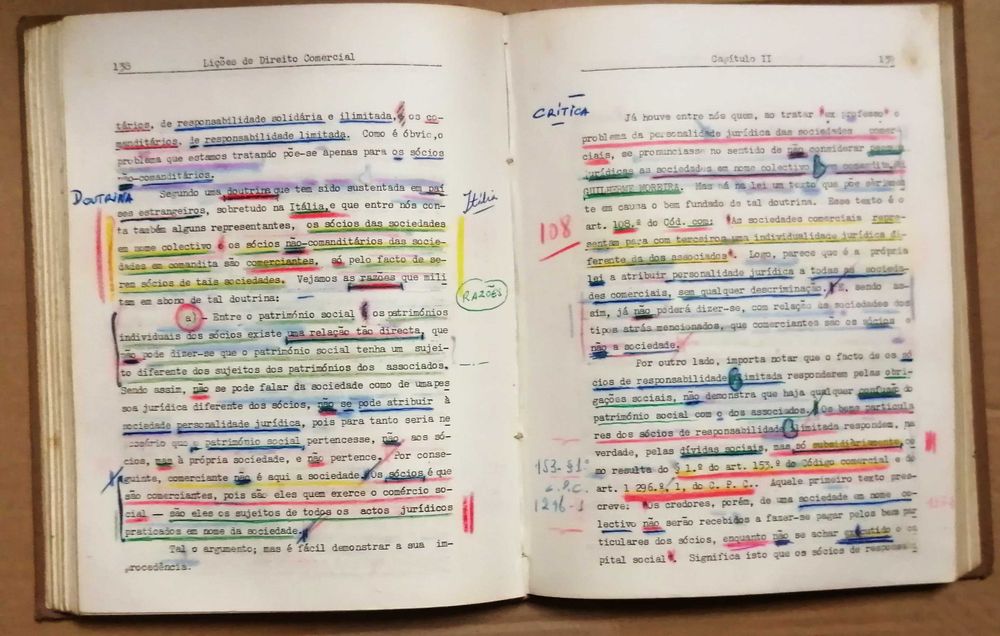 138 Lições de Direito Comercial
tários, de responsabilidade solidária e ilimitada, e os co-
manditários, de responsabilidade limitada. Como é óbvio, o
problema que estamos tratando põe-se apenas para os sócios
não-comanditários.
DOUTRINA
Segundo uma doutrina que tem sido sustentada em paí
ses estrangeiros, sobretudo na Itália, e que entre nós con-
Itália
ta também alguns representantes, os sócios das sociedades
em nome colectivo e os sócios não-comanditários das socie-
dades em comandita são comerciantes, só pelo facto de se-
rem sócios de tais sociedades. Vejamos as razões que mili
RAZÕES
tam em abono de tal doutrina:
a) - Entre o património social e os patrimónios
individuais dos sócios existe uma relação tão directa, que
não pode dizer-se que o património social tenha um sujei-
to diferente dos sujeitos dos patrimónios dos associados.
Sendo assim, não se pode falar da sociedade como de uma pes
soa jurídica diferente dos sócios, não se pode atribuir à
sociedade personalidade jurídica, pois para tanto seria ne
cessário que o património social pertencesse, não aos só-
cios, mas à própria sociedade, e não pertence. Por conse-
guinte, comerciante não é aqui a sociedade. Os sócios é que
são comerciantes, pois são eles quem exerce o comércio so-
cial — são eles os sujeitos de todos os actos jurídicos
praticados em nome da sociedade.
Tal o argumento; mas é fácil demonstrar a sua im-
procedência.
Capítulo II 139
CRÍTICA
Já houve entre nós quem, ao tratar "ex professo" o
problema da personalidade jurídica das sociedades comer-
ciais, se pronunciasse no sentido de não considerar pessoas
jurídicas as sociedades em nome colectivo e em comandita:
GUILHERME MOREIRA. Mas há na lei um texto que põe sèriamen
te em causa o bem fundado de tal doutrina. Esse texto é o
108
art. 108.º do Cód. com: "As sociedades comerciais repre-
sentam para com terceiros uma individualidade jurídica di-
ferente da dos associados". Logo, parece que é a própria
lei a atribuir personalidade jurídica a todas as socieda-
des comerciais, sem qualquer descriminação. E, sendo as-
sim, já não poderá dizer-se, com relação às sociedades dos
tipos atrás mencionados, que comerciantes são os sócios e
não a sociedade.
Por outro lado, importa notar que o facto de os só
cios de responsabilidade ilimitada responderem pelas obri-
gações sociais, não demonstra que haja qualquer confusão do
património social com o dos associados. Os bens particula
res dos sócios de responsabilidade ilimitada respondem, na
verdade, pelas dívidas sociais, mas só subsidiàriamente, co
153-§1º
mo resulta do § 1.º do art. 153.º do Código comercial e do
C.P.C.
art. 1 296.º, 1, do C. P. C.. Aquele primeiro texto pres-
1296-1
creve: "Os credores, porém, de uma sociedade em nome co-
lectivo não serão recebidos a fazer-se pagar pelos bens par
ticulares dos sócios, enquanto não se achar excutido o ca
pital social". Significa isto que os sócios de responsa-